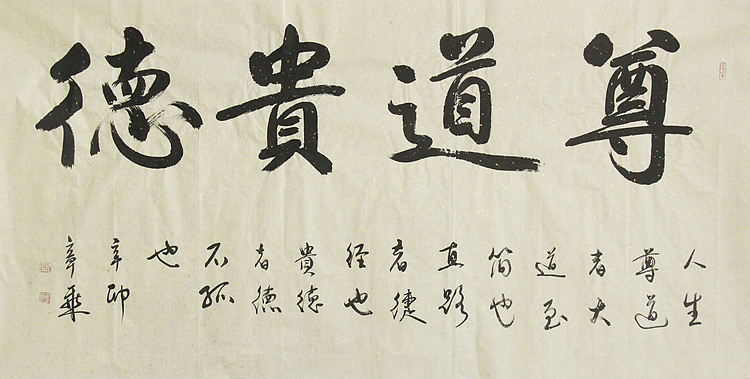 尊道貴德
人生
尊道
者大
道至
简也
直路
者捷
径也
貴德
者德
不孤
也
辛卯
章